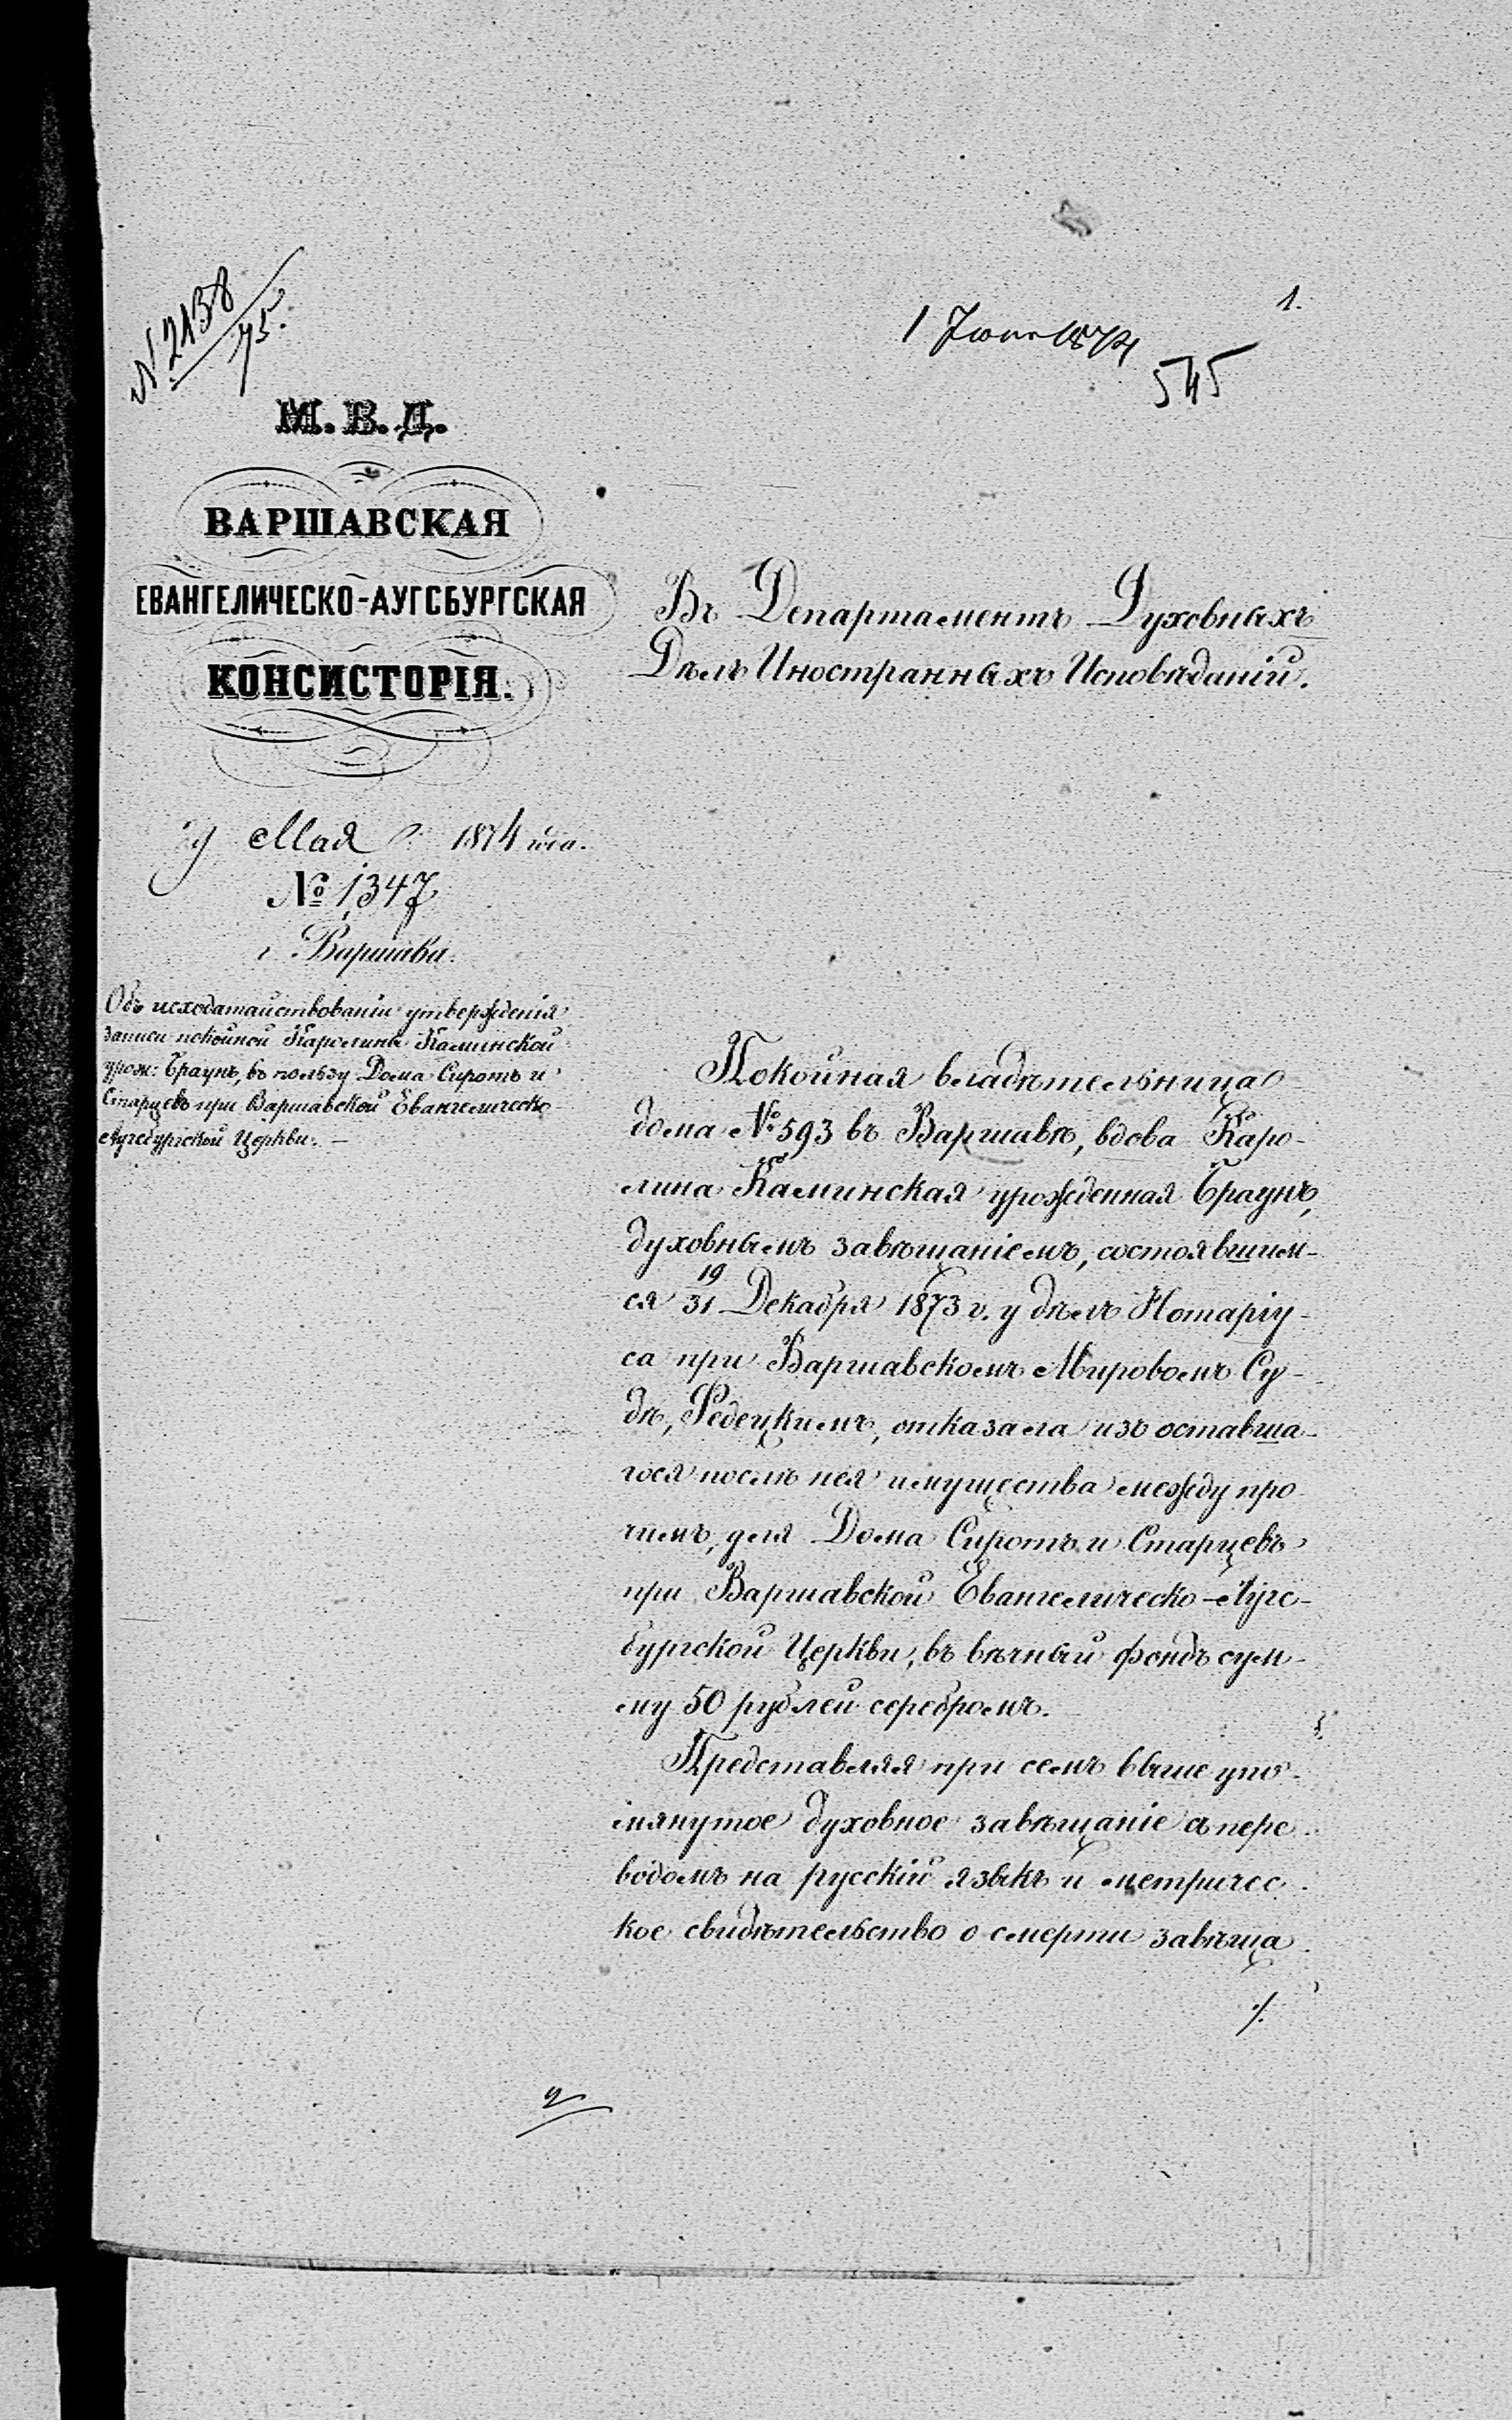 № 2138
75.
1.
1 Июня 1874
545
М. В. Д.
ВАРШАВСКАЯ
ЕВАНГЕЛИЧЕСКО-АУГСБУРГСКАЯ
КОНСИСТОРІЯ.
Мая 1874 года.
№ 1347
г. Варшава.
Объ исходатайствованіи утвержденія
записи покойной Каролины Каминской
урож: Браунъ, въ пользу Дома Сиротъ и
Старцевъ при Варшавской Евангелическо
Аугсбургской Церкви. —
Въ Департаментъ Духовныхъ
Дѣлъ Иностранныхъ Исповѣданій.
Покойная владѣтельница
дома № 593 въ Варшавѣ, вдова Каро-
лина Каминская урожденная Браунъ,
духовнымъ завѣщаніемъ, состоявшим-
ся 19/31 Декабря 1873 г. у дѣлъ Нотаріу-
са при Варшавскомъ Мировомъ Су-
дѣ, Редецкимъ, отказала изъ оставша-
гося послѣ нея имущества между про
чимъ, для Дома Сиротъ и Старцевъ
при Варшавской Евангелическо-Аугс-
бургской Церкви, въ вѣчный фондъ сум-
му 50 рублей серебромъ.
Представляя при семъ выше упо-
мянутое духовное завѣщаніе съ пере-
водомъ на русскій языкъ и метричес-
кое свидѣтельство о смерти завѣща-
./.